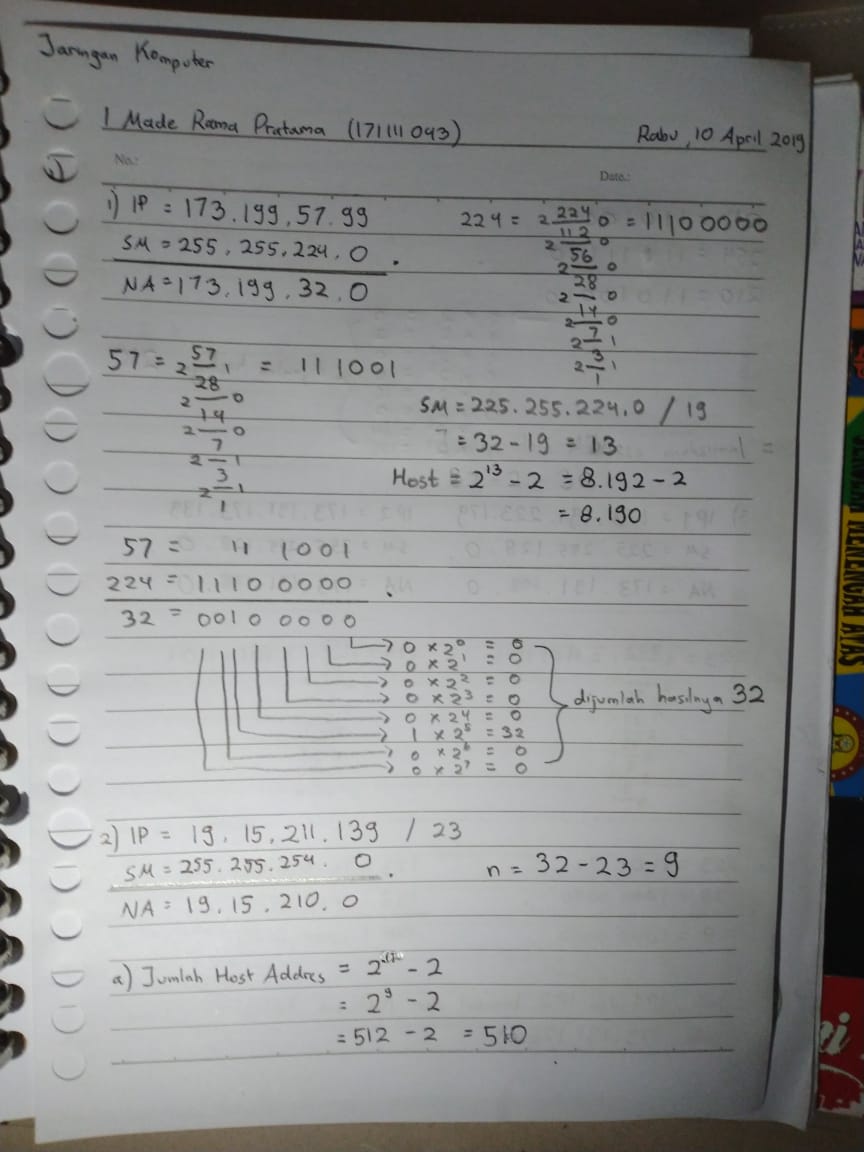 Jaringan Komputer
I Made Rama Pratama (171111043)
Rabu, 10 April 2019
No.:
Date.:
1) IP = 173.199.57.99
SM = 255.255.224.0
NA = 173.199.32.0
224 = 2 224 0 = 11100000
2 112 0
2 56 0
2 28 0
2 14 0
2 7 1
2 3 1
1
57 = 2 57 1 = 111001
2 28 0
2 14 0
2 7 1
2 3 1
1
SM = 225.255.224.0 / 19
= 32 - 19 = 13
Host = 2^13 - 2 = 8.192 - 2
= 8.190
57 = 11 1001
224 = 11100000
32 = 0010 0000
0 × 2^0 = 0
0 × 2^1 = 0
0 × 2^2 = 0
0 × 2^3 = 0
0 × 2^4 = 0
1 × 2^5 = 32
0 × 2^6 = 0
0 × 2^7 = 0
dijumlah hasilnya 32
2) IP = 19.15.211.139 / 23
SM = 255.255.254.0
NA = 19.15.210.0
n = 32 - 23 = 9
a) Jumlah Host Addres = 2 - 2
= 2^9 - 2
= 512 - 2 = 510
MENENGAH ATAS